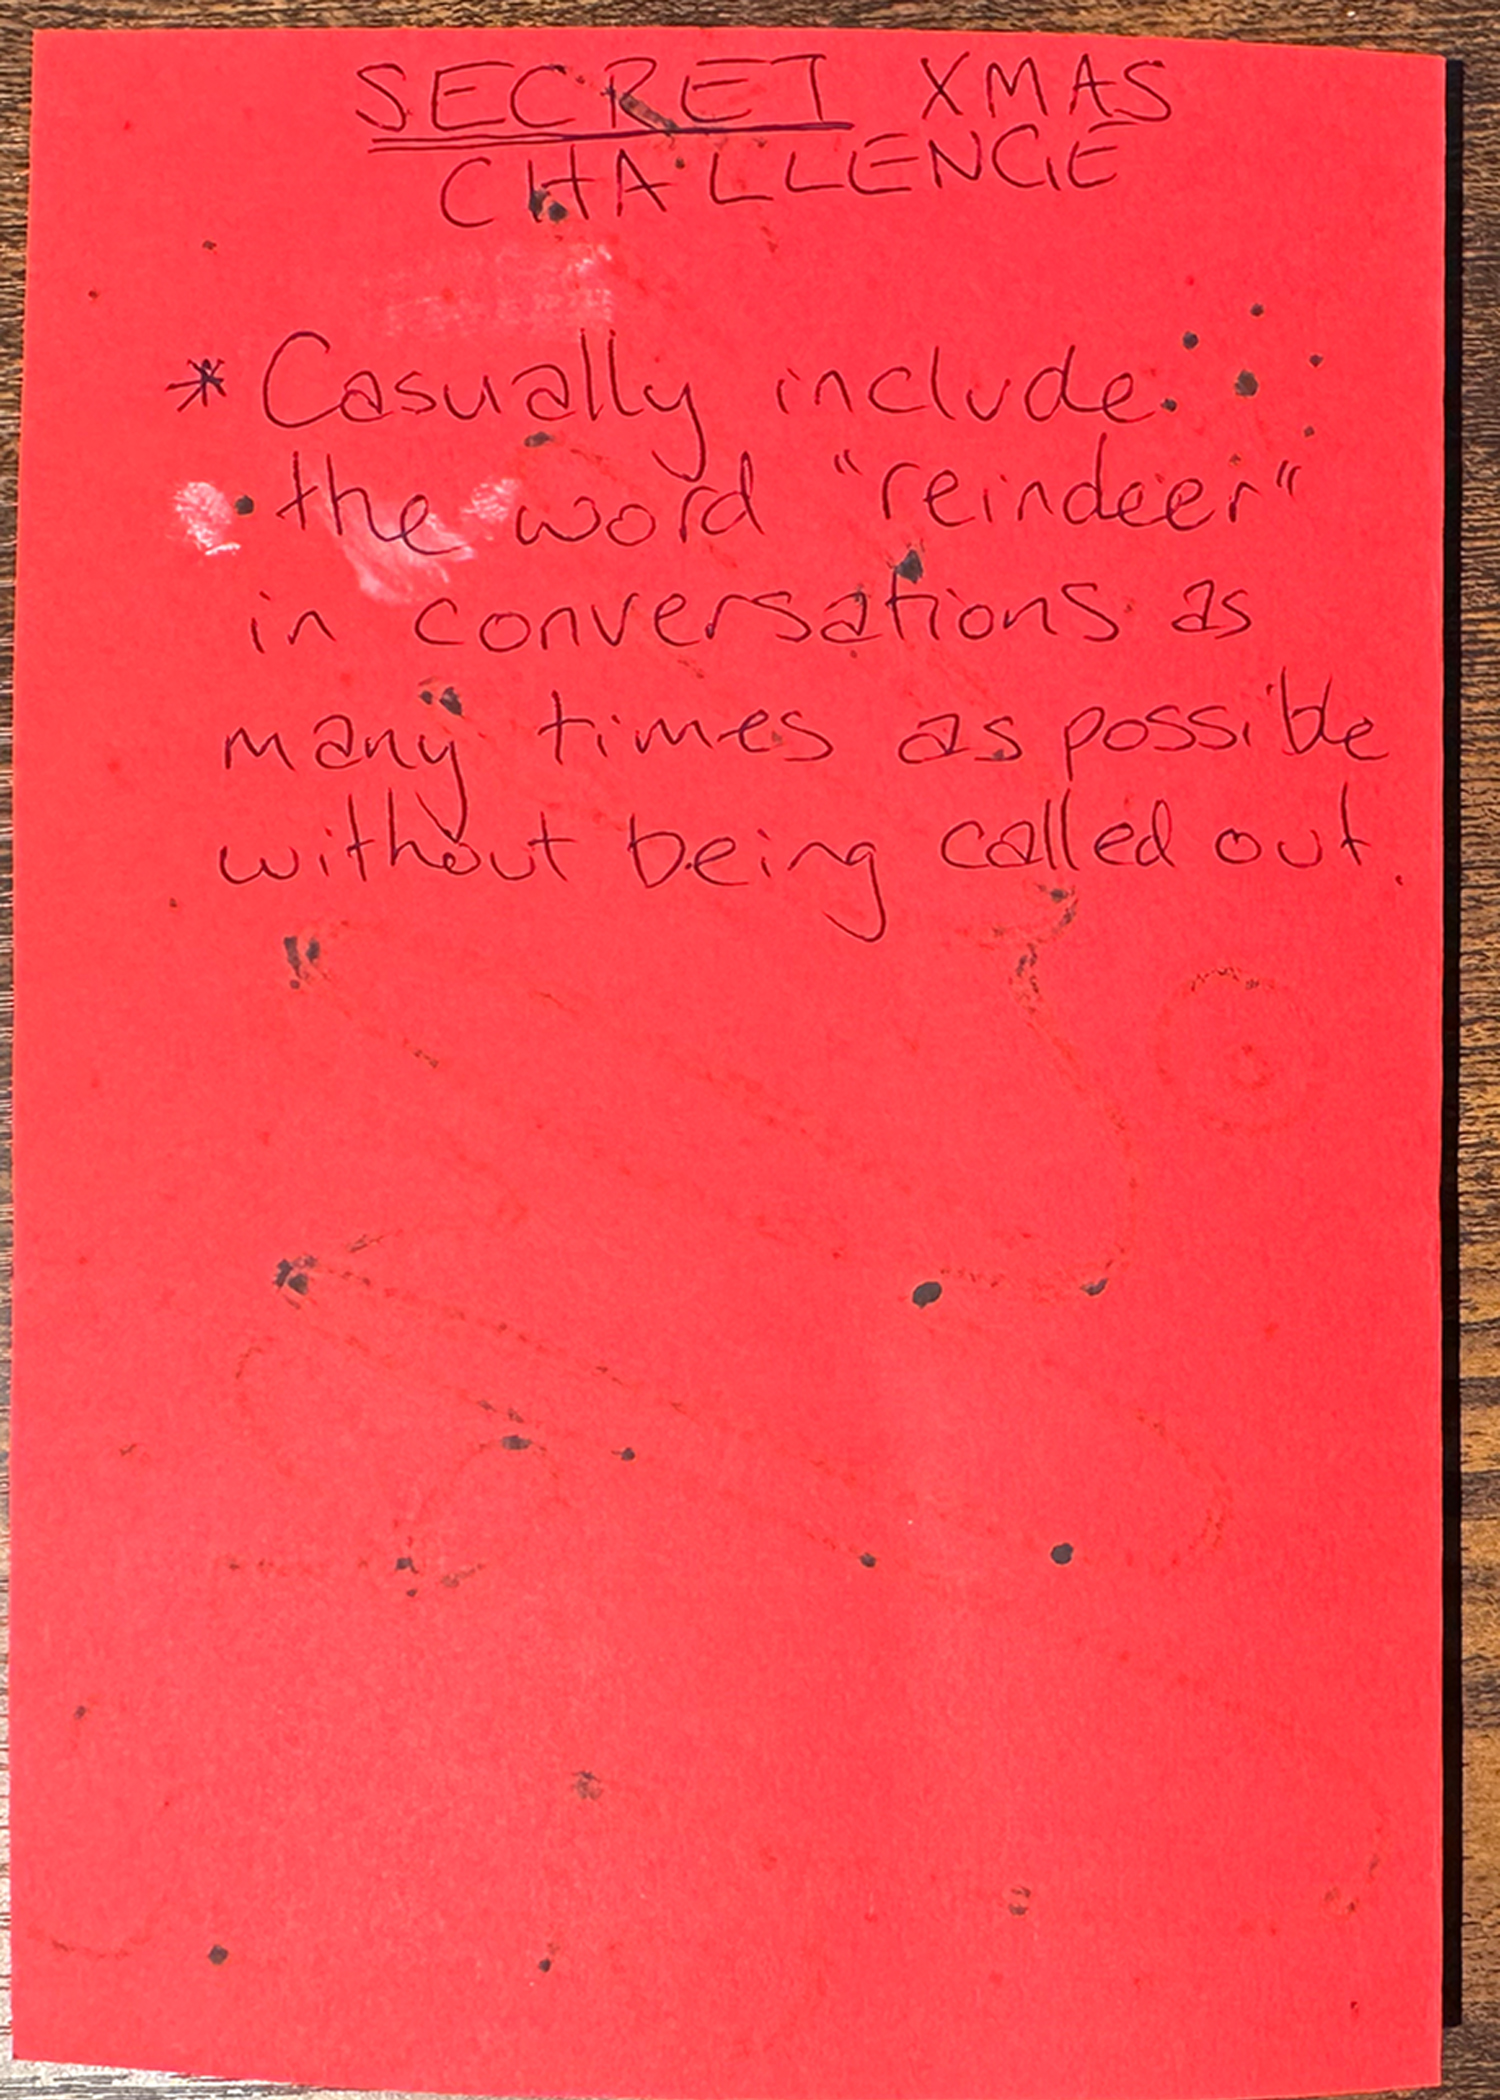 SECRET XMAS
CHALLENGE
* Casually include
the word "reindeer"
in conversations as
many times as possible
without being called out.